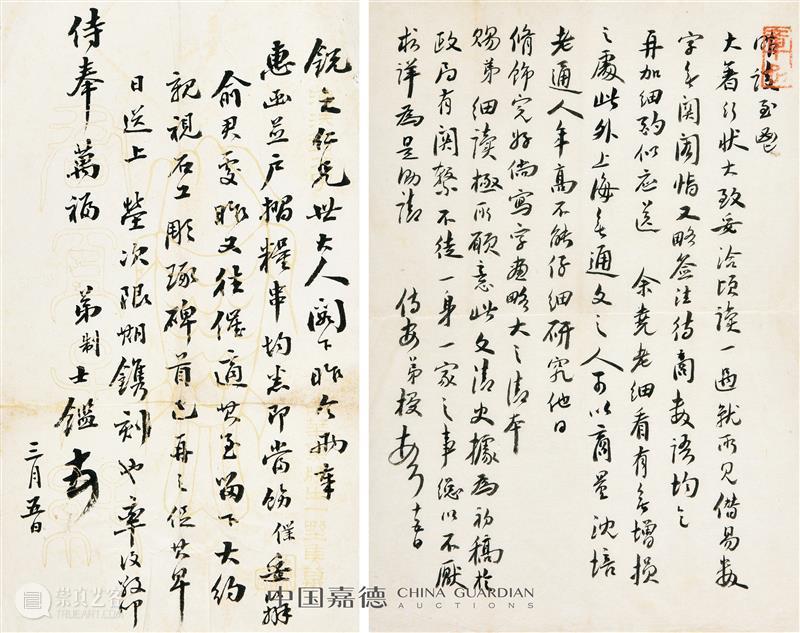 至鬯
大著行狀大致妥洽頃讀一過就所見僭易數
字無關閎恉又略簽注待商數語均乞
再加細酌似應送 余堯老細看有無增損
之處此外上海無通文之人可以商量沈培
老通人年高不能仔細研究他日
脩飾完好倘寫字畫略大之清本
賜弟細讀極所願意此文清史據為初稿於
政局有關繫不徒一身一家之事總以不厭
求詳為是助請
侍安弟 十五日
銳之仁兄世大人閣下昨今兩奉
惠函並戶摺糧串均悉即當飭催妥辦
俞君處昨又往催適其至留下大約
親視石工彫琢碑首已再三促其早
日送上 塋次限期鐫刻也率復敬叩
侍奉萬福 弟制士鑑
三月五日
中国嘉德 CHINA GUARDIAN
AUCTIONS
崇真艺客